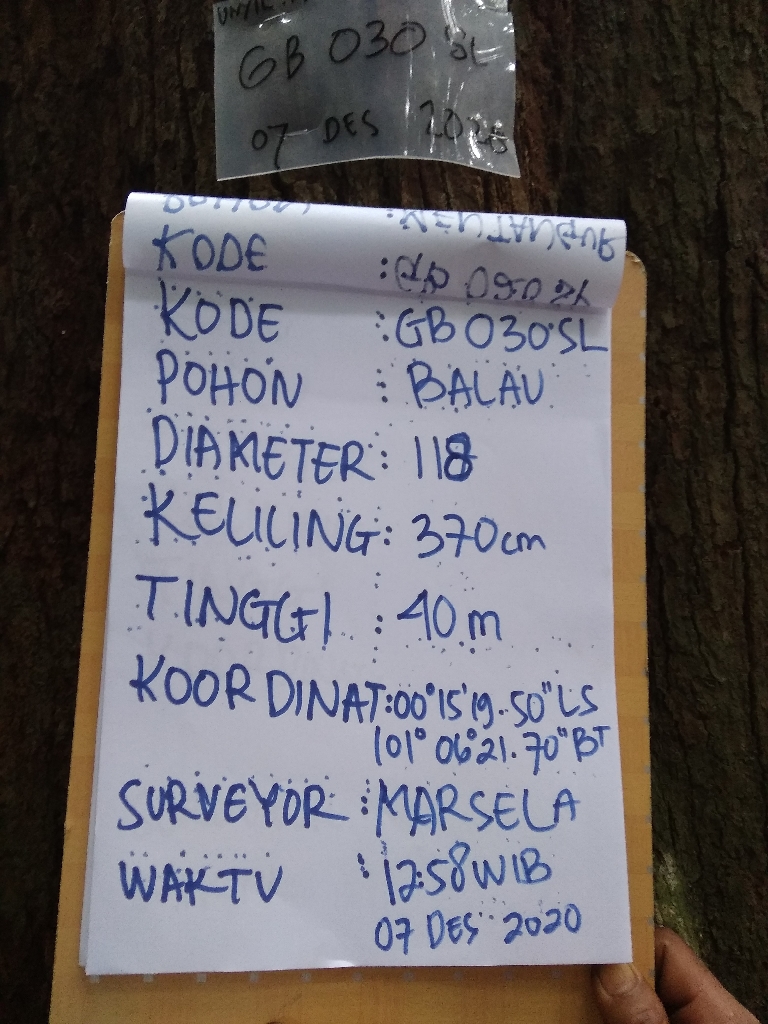 GB 030 SL
07 DES 2020
KODE
KODE : GB 030 SL
POHON : BALAU
DIAMETER : 118
KELILING : 370 cm
TINGGI : 40 m
KOORDINAT : 00° 15' 19.50" LS
101° 06° 21.70" BT
SURVEYOR : MARSELA
WAKTU : 12:58 WIB
07 DES 2020